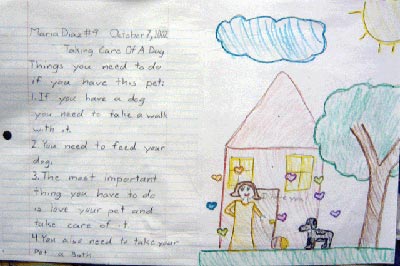 Maria Diaz #9 October 7, 2002
Taking Care Of A Dog
Things you need to do
if you have this pet:
1. If you have a dog
you need to take a walk
with it.
2. You need to feed your
dog.
3. The most important
thing you have to do
is love your pet and
take care of it
4 You also need to take your
Pet a bath